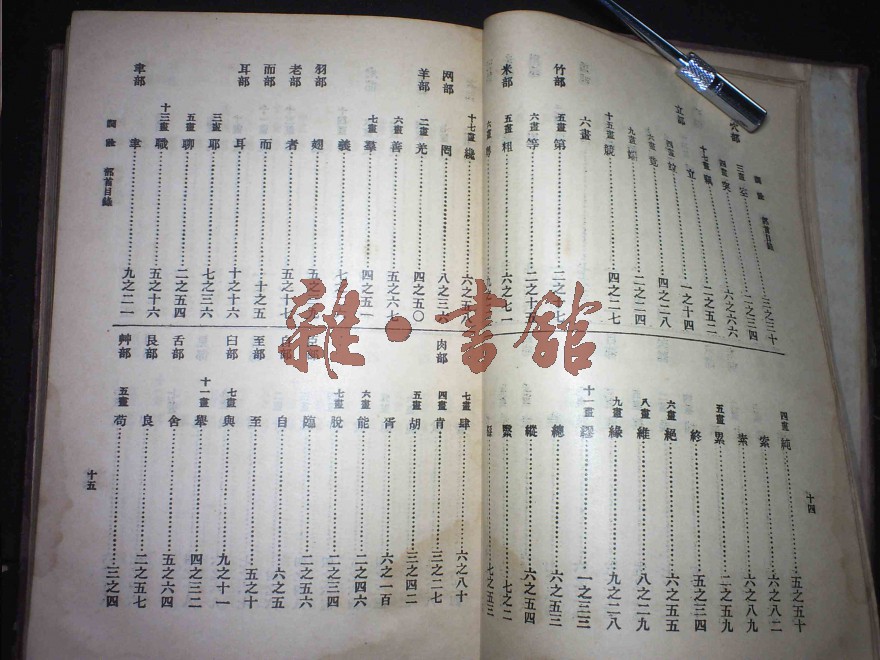 詞詮 部首目錄
穴部 三畫 空……三之三十
四畫 突……二之三四
十七畫 竊……六之六六
立部 立……二之五二
四畫 ……一之十四
六畫 竟……四之二八
九畫 ……二之二四
十五畫 競……四之二七
六畫
竹部 五畫 第……二之二七
六畫 等……二之十五
米部 五畫 粗……六之七
四畫 純……五之五十
索……六之八二
素……六之八九
五畫 累……二之五九
終……五之三四
六畫 絕……六之五五
八畫 維……八之二九
九畫 緣……九之二八
十一畫 繆……一之三三
總……六之五三
縱……六之五四
繄……七之二
七之五三
十四
十七畫 纔……六之五九
网部 罔……八之三六
羊部 二畫 羌……四之五〇
六畫 善……五之六七
七畫 羣……四之五一
義……七之三
羽部 翅……五之
老部 者……五之十七
而部 而……十之五
耳部 耳……十之十六
三畫 耶……七之三六
五畫 聊……二之五四
十三畫 職……五之十六
聿部 聿……九之二一
詞詮 部首目錄
七畫 肆……六之八十
肉部 四畫 肯……三之二七
五畫 胡……三之四二
胥……六之一百
六畫 能……二之四六
七畫 脫……二之三四
臣部 臨……二之五六
自部 自……六之五
至部 至……五之十
臼部 七畫 與……九之十一
十一畫 舉……四之三二
舌部 舍……五之六四
艮部 良……二之五七
艸部 五畫 苟……三之四
十五
雜·書館